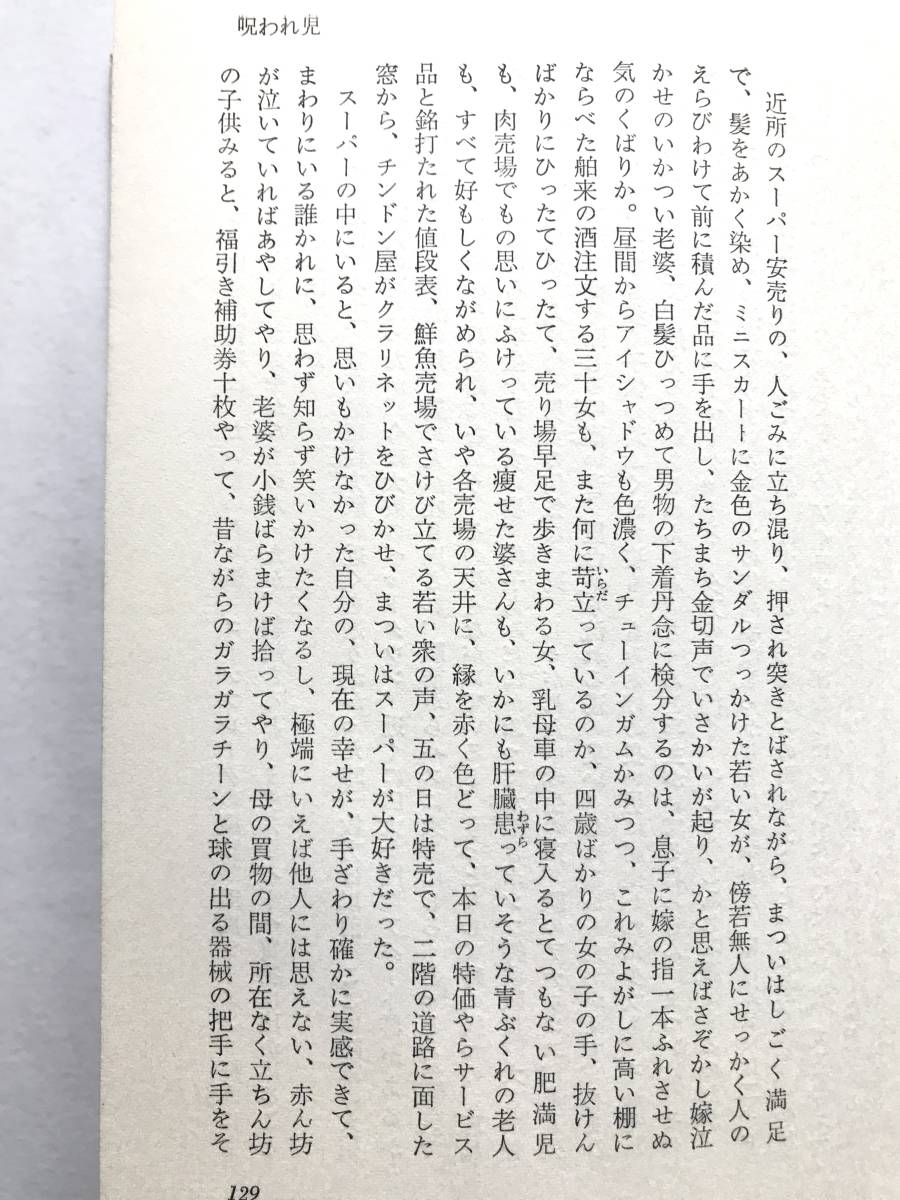 呪われ児
近所のスーパー安売りの、人ごみに立ち混り、押され突きとばされながら、まついはしごく満足
で、髪をあかく染め、ミニスカートに金色のサンダルつっかけた若い女が、傍若無人にせっかく人の
えらびわけて前に積んだ品に手を出し、たちまち金切声でいさかいが起り、かと思えばさぞかし嫁泣
かせのいかつい老婆、白髪ひっつめて男物の下着丹念に検分するのは、息子に嫁の指一本ふれさせぬ
気のくばりか。昼間からアイシャドウも色濃く、チューインガムかみつつ、これみよがしに高い棚に
ならべた舶来の酒注文する三十女も、また何に苛立っているのか、四歳ばかりの女の子の手、抜けん
ばかりにひったてひったて、売り場早足で歩きまわる女、乳母車の中に寝入るとてつもない肥満児
も、肉売場でもの思いにふけっている痩せた婆さんも、いかにも肝臓患っていそうな青ぶくれの老人
も、すべて好もしくながめられ、いや各売場の天井に、縁を赤く色どって、本日の特価やらサービス
品と銘打たれた値段表、鮮魚売場でさけび立てる若い衆の声、五の日は特売で、二階の道路に面した
窓から、チンドン屋がクラリネットをひびかせ、まついはスーパーが大好きだった。
スーパーの中にいると、思いもかけなかった自分の、現在の幸せが、手ざわり確かに実感できて、
まわりにいる誰かれに、思わず知らず笑いかけたくなるし、極端にいえば他人には思えない、赤ん坊
が泣いていればあやしてやり、老婆が小銭ばらまけば拾ってやり、母の買物の間、所在なく立ちん坊
の子供みると、福引き補助券十枚やって、昔ながらのガラガラチーンと球の出る器械の把手に手をそ
129